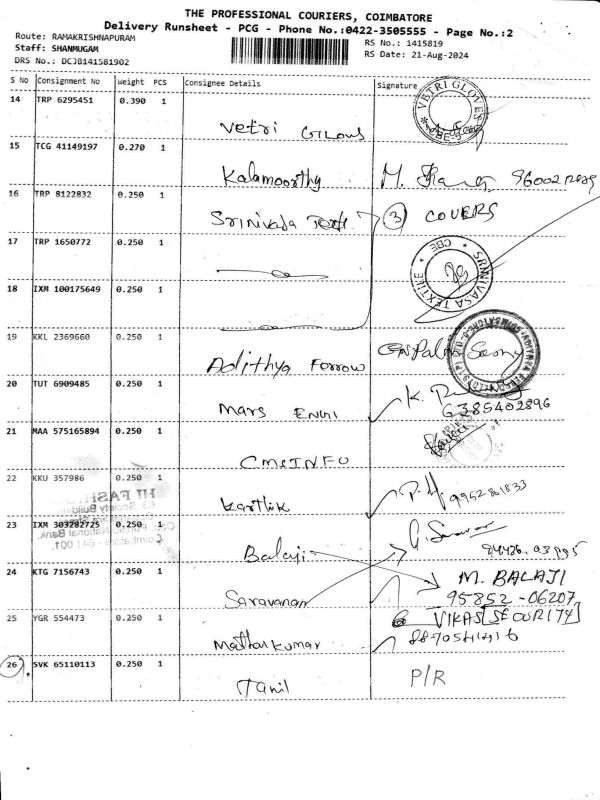 THE PROFESSIONAL COURIERS, COIMBATORE
Delivery Runsheet - PCG - Phone No.:0422-3505555 - Page No.:2
Route: RAMAKRISHNAPURAM
Staff: SHANMUGAM
DRS No.: DCJB141581902
RS No.: 1415819
RS Date: 21-Aug-2024
S No Consignment No Weight PCS Consignee Details Signature
14 TRP 6295451 0.390 1 Vetri Gloves
VETRI GLOVES
15 TCG 41149197 0.270 1 Kalamoorthy M.
16 TRP 8122832 0.250 1 Srinivasa Text. 3 COVERS
17 TRP 1650772 0.250 1
SRINIVASA TEXTILE * CBE *
18 IXM 100175649 0.250 1
19 KKL 2369660 0.250 1 Adithya Ferrow
20 TUT 6909485 0.250 1 Mars ENGI K.
6385402896
21 MAA 575165894 0.250 1 CMSINFO
22 KKU 357986 0.250 1 Karthik
HI FASH
Society Building
National Bank
Coimbatore - 641 001.
23 IXM 303282725 0.250 1 Balaji
24 KTG 7156743 0.250 1 Saravanan M. BALAJI
95852-06207
25 YGR 554473 0.250 1 Mathankumar VIKAS [SECURITY]
26 SVK 65110113 0.250 1 Tamil P/R